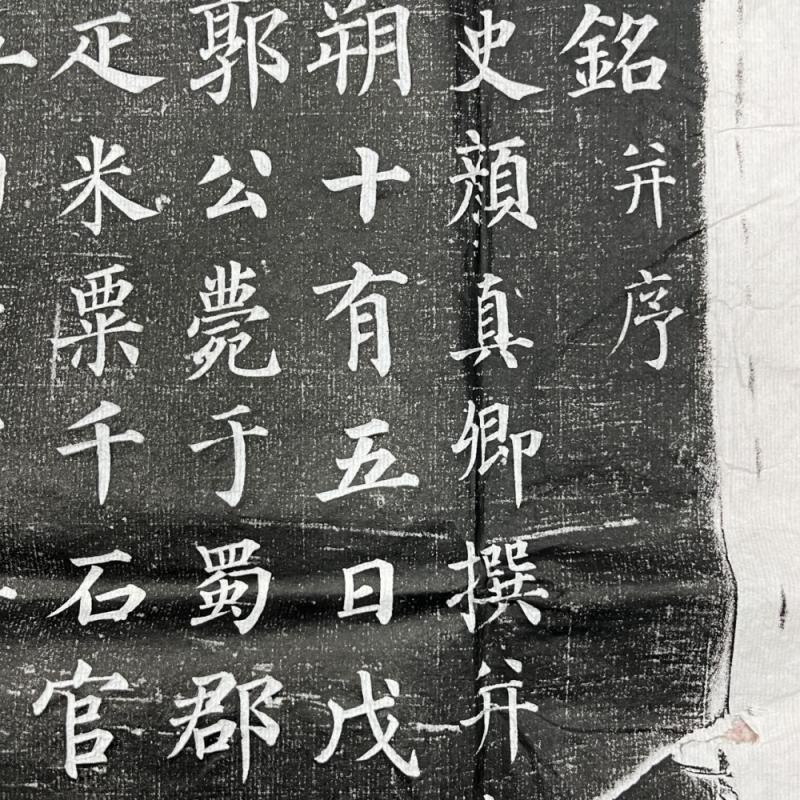 銘并序
史顏真卿撰并
朔十有五日戊
郭公薨于蜀郡
疋米粟千石官